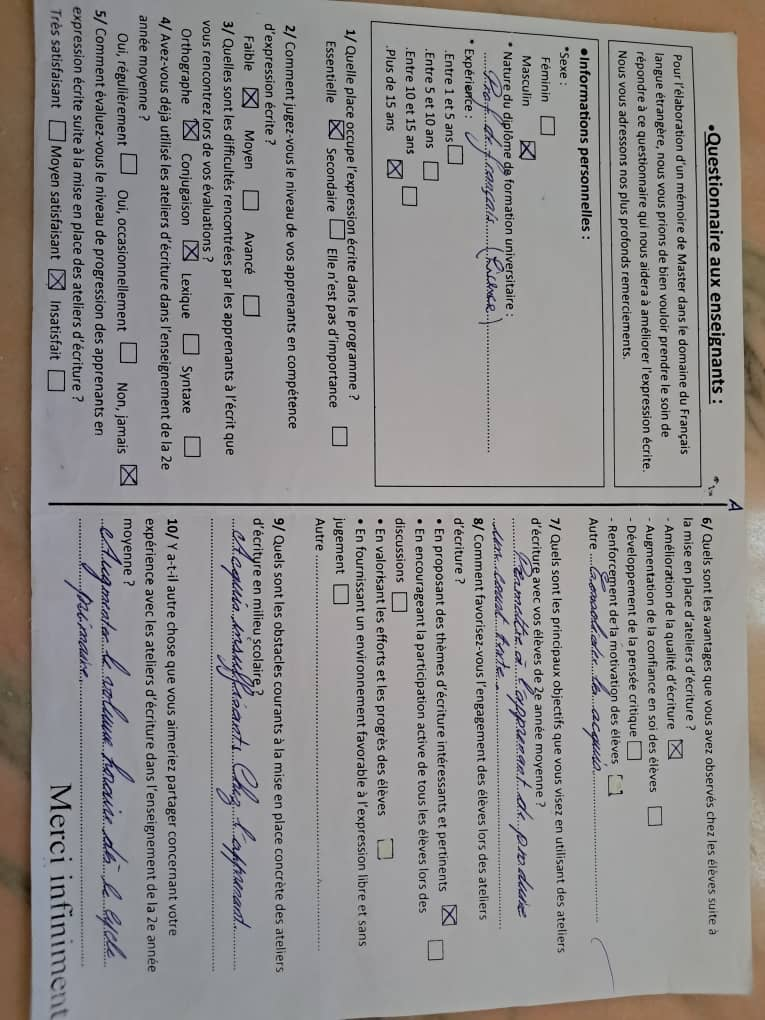 •Questionnaire aux enseignants :
Pour l'élaboration d'un mémoire de Master dans le domaine du Français
langue étrangère, nous vous prions de bien vouloir prendre le soin de
répondre à ce questionnaire qui nous aidera à améliorer l'expression écrite.
Nous vous adressons nos plus profonds remerciements.
•Informations personnelles :
*Sexe :
Féminin ☐
Masculin ☒
* Nature du diplôme de formation universitaire :
Prof de français (Licence)
* Expérience :
.Entre 1 et 5 ans ☐
.Entre 5 et 10 ans ☐
.Entre 10 et 15 ans ☐
.Plus de 15 ans ☒
1/ Quelle place occupe l'expression écrite dans le programme ?
Essentielle ☒ Secondaire ☐ Elle n'est pas d'importance ☐
2/ Comment jugez-vous le niveau de vos apprenants en compétence
d'expression écrite ?
Faible ☒ Moyen ☐ Avancé ☐
3/ Quelles sont les difficultés rencontrées par les apprenants à l'écrit que
vous rencontrez lors de vos évaluations ?
Orthographe ☒ Conjugaison ☒ Lexique ☐ Syntaxe ☐
4/ Avez-vous déjà utilisé les ateliers d'écriture dans l'enseignement de la 2e
année moyenne ?
Oui, régulièrement ☐ Oui, occasionnellement ☐ Non, jamais ☒
5/ Comment évaluez-vous le niveau de progression des apprenants en
expression écrite suite à la mise en place des ateliers d'écriture ?
Très satisfaisant ☐ Moyen satisfaisant ☒ Insatisfait ☐
A
6/ Quels sont les avantages que vous avez observés chez les élèves suite à
la mise en place d'ateliers d'écriture ?
- Amélioration de la qualité d'écriture ☒
- Augmentation de la confiance en soi des élèves ☐
- Développement de la pensée critique ☐
- Renforcement de la motivation des élèves ☐
Autre Consolider les acquis.
7/ Quels sont les principaux objectifs que vous visez en utilisant des ateliers
d'écriture avec vos élèves de 2e année moyenne ?
Permettre à l'apprenant de produire
un court texte.
8/ Comment favorisez-vous l'engagement des élèves lors des ateliers
d'écriture ?
• En proposant des thèmes d'écriture intéressants et pertinents ☒
• En encourageant la participation active de tous les élèves lors des ☐
discussions ☐
• En valorisant les efforts et les progrès des élèves ☐
• En fournissant un environnement favorable à l'expression libre et sans
jugement ☐
Autre
9/ Quels sont les obstacles courants à la mise en place concrète des ateliers
d'écriture en milieu scolaire ?
Acquis insuffisants chez l'apprenant.
10/ Y a-t-il autre chose que vous aimeriez partager concernant votre
expérience avec les ateliers d'écriture dans l'enseignement de la 2e année
moyenne ?
Augmenter le volume horaire dès le cycle
primaire.
Merci infiniment